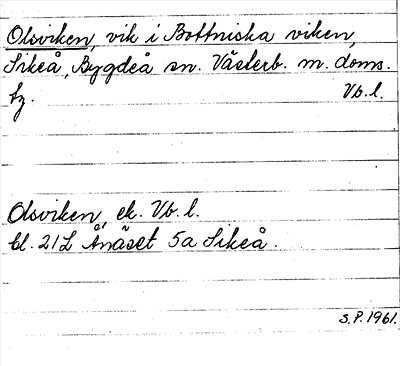 Olsviken, vik i Bottniska viken,
Sikeå, Bygdeå sn. Västerb. m. doms.
fz. Vb. l.
Olsviken, ek. Vb. l.
bl. 21L Ånäset 5a Sikeå.
S.P. 1961.